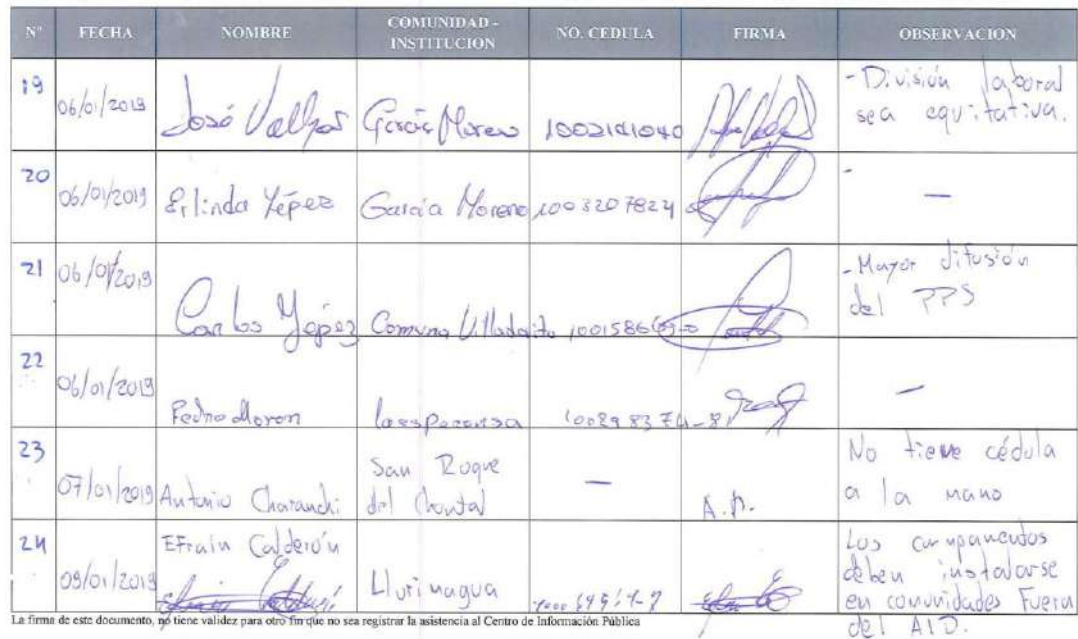 N° FECHA NOMBRE COMUNIDAD - INSTITUCION NO. CEDULA FIRMA OBSERVACION
19 06/01/2019 José García Moreno - División laboral sea equitativa.
20 06/01/2019 Erlinda Yépez García Moreno 1003207824 - —
21 06/01/2019 Carlos Yépez Comuna - Mayor difusión del PPS
22 06/01/2019 Pedro Moron —
23 07/01/2019 Antonio Charanchi San Roque del Chontal — A.P. No tiene cédula a la mano
24 09/01/2019 Efraín Calderón Llurimagua Los campamentos deben instalarse en comunidades fuera del AID.
La firma de este documento, no tiene validez para otro fin que no sea registrar la asistencia al Centro de Información Pública